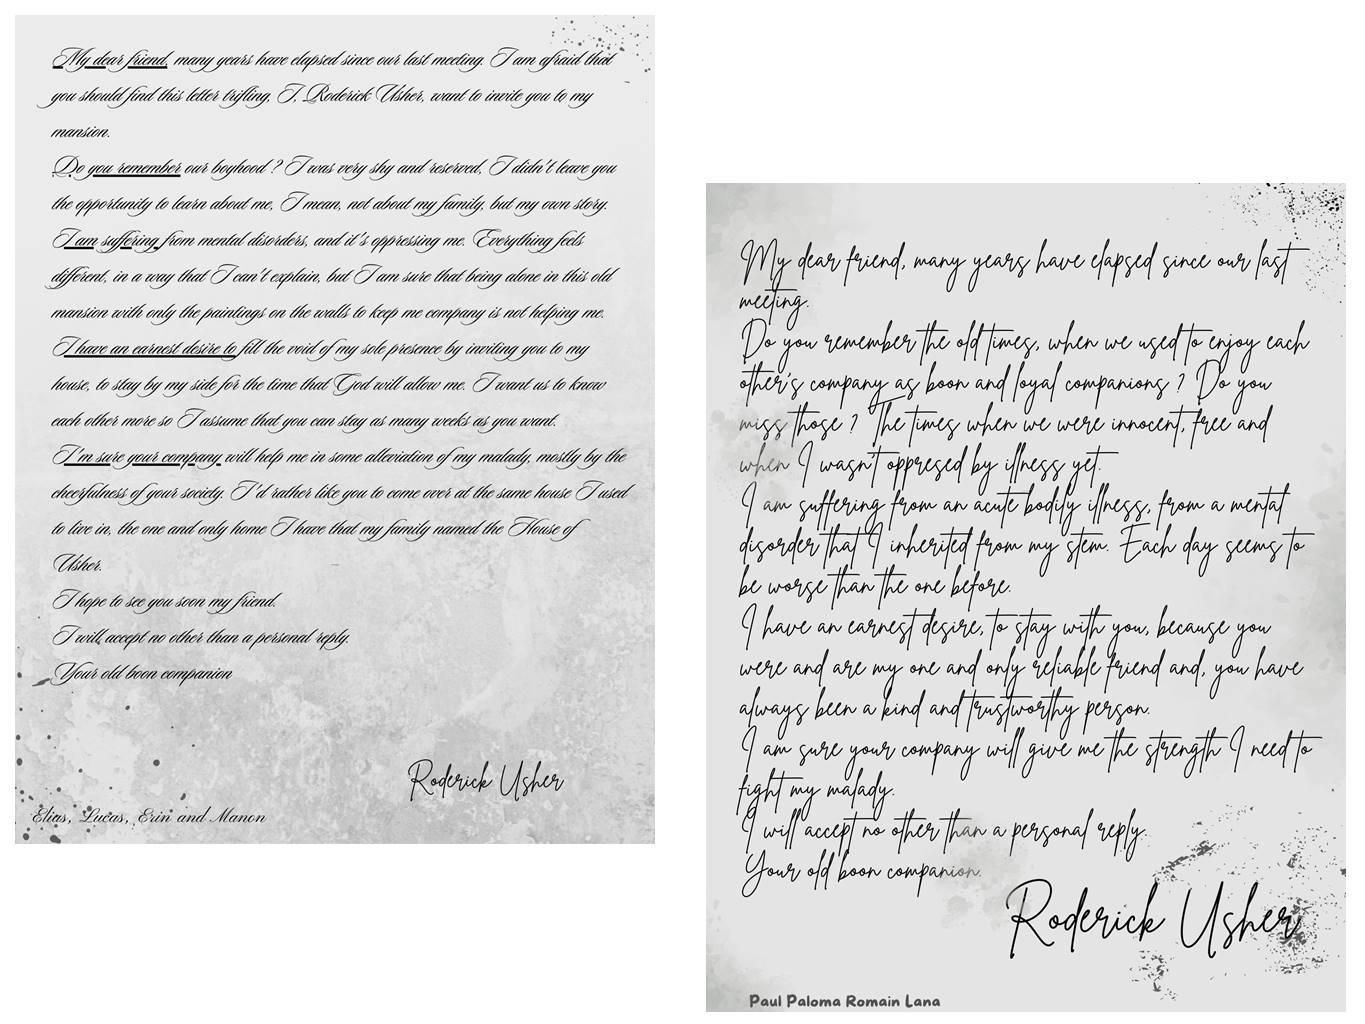 My dear friend, many years have elapsed since our last meeting. I am afraid that
you should find this letter trifling. I, Roderick Usher, want to invite you to my
mansion.
Do you remember our boyhood ? I was very shy and reserved, I didn't leave you
the opportunity to learn about me, I mean, not about my family, but my own story.
I am suffering from mental disorders, and it's oppressing me. Everything feels
different, in a way that I can't explain, but I am sure that being alone in this old
mansion with only the paintings on the walls to keep me company is not helping me.
I have an earnest desire to fill the void of my sole presence by inviting you to my
house, to stay by my side for the time that God will allow me. I want us to know
each other more so I assume that you can stay as many weeks as you want.
I'm sure your company will help me in some alleviation of my malady, mostly by the
cheerfulness of your society. I'd rather like you to come over at the same house I used
to live in, the one and only home I have that my family named the House of
Usher.
I hope to see you soon my friend.
I will accept no other than a personal reply.
Your old boon companion
Roderick Usher
Elias, Lucas, Erin and Manon
My dear friend, many years have elapsed since our last
meeting.
Do you remember the old times, when we used to enjoy each
other's company as boon and loyal companions ? Do you
miss those ? The times when we were innocent, free and
when I wasn't oppresed by illness yet.
I am suffering from an acute bodily illness, from a mental
disorder that I inherited from my stem. Each day seems to
be worse than the one before.
I have an earnest desire, to stay with you, because you
were and are my one and only reliable friend and, you have
always been a kind and trustworthy person.
I am sure your company will give me the strength I need to
fight my malady.
I will accept no other than a personal reply.
Your old boon companion.
Roderick Usher
Paul Paloma Romain Lana